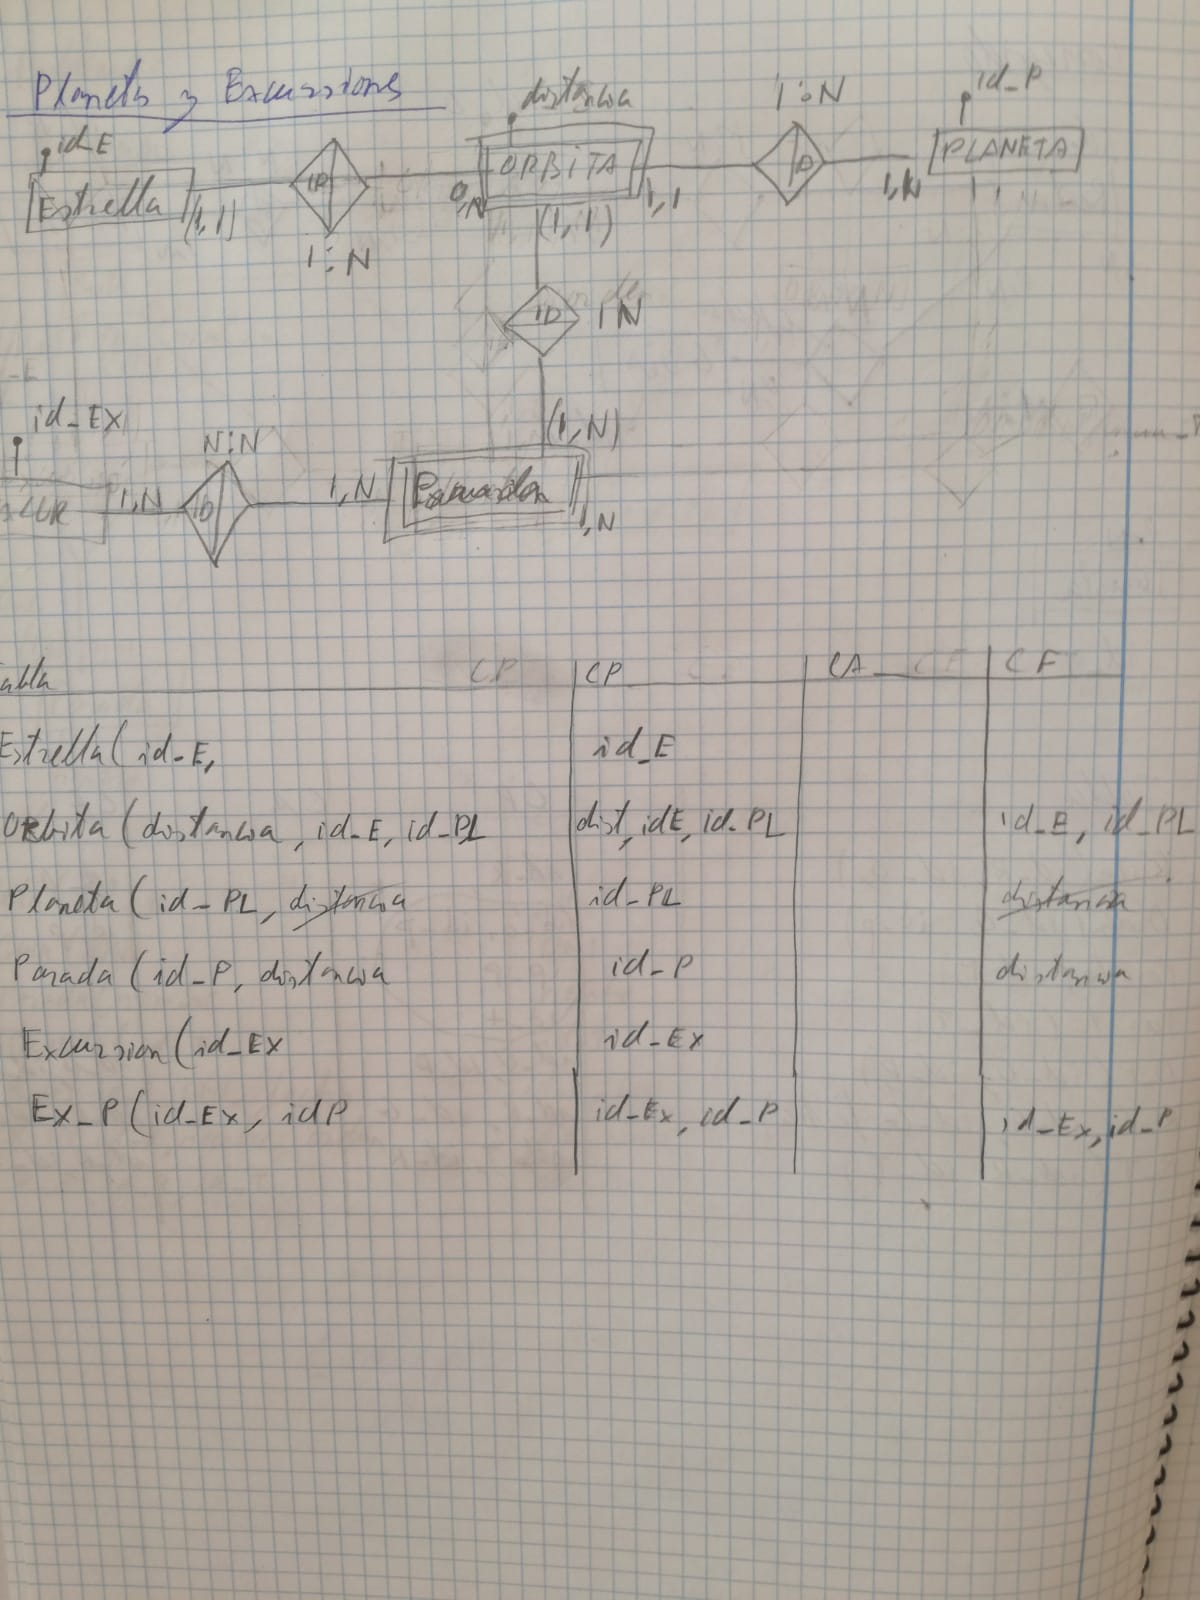 Planeta y Excursiones
distancia
1:N
id_P
id_E
Estrella
(1,1)
ID
1:N
0,N
ORBITA
1,1
ID
1,N
PLANETA
(1,1)
ID
1N
(1,N)
id_EX
N:N
1,N
ID
1,N
1,N
CP
CP
CA
CF
Estrella( id-E,
id_E
Orbita (distancia, id-E, id-PL
dist, idE, id-PL
id_E, id_PL
Planeta (id-PL, distancia
id-PL
distancia
Parada (id-P, distancia
id-P
distancia
Excursion (id-Ex
id-Ex
Ex_P (id-Ex, idP
id-Ex, id-P
id-Ex, id-P